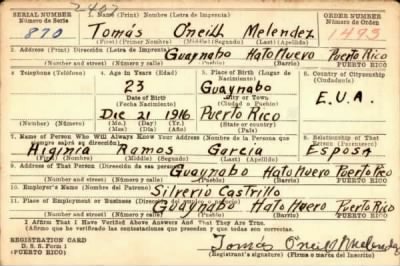 SERIAL NUMBER
Número de Serie
870
2407
1. Name (Print) Nombre (Letra de Imprenta)
Tomás O'neill Melendez
(First) (Primer Nombre) (Middle) (Last) (Apellido)
ORDER NUMBER
Número de Orden
1493
2. Address (Print) Dirección (Letra de Imprenta)
Guaynabo Hato Nuevo Puerto Rico
(Number and street) (Número y calle) (Town) (Pueblo) (Barrio) PUERTO RICO
4. Telephone (Teléfono)
4. Age in Years (Edad)
23
Date of Birth
(Fecha Nacimiento)
Dic 21 1916
(Mo.) (Day) (Yr.)
(Mes.) (Día) (Año)
5. Place of Birth (Lugar de Nacimiento)
Guaynabo
City or Town
(Ciudad o Pueblo)
Puerto Rico
(State or country)
6. Country of Citizenship
(Ciudadanía)
E.U.A.
(Number) (Número)
7. Name of Person Who Will Always Know Your Address (Nombre de la Persona que siempre sabrá su dirección)
Higinia Ramos Garcia
(First) (Nombre) (Middle) (Last) (Apellido)
8. Relationship of That Person (Parentesco)
Esposa
9. Address of That Person (Dirección de esa persona)
Guaynabo Hato Nuevo Puerto Rico
(Number and street) (Número y calle) (Town) (Pueblo) (Barrio) PUERTO RICO
10. Employer's Name (Nombre del Patrono)
Silverio Castrillo
11. Place of Employment or Business (Dirección del empleo o negocio)
Guaynabo Hato Nuevo Puerto Rico
(Number and street) (Número y calle) (Town) (Pueblo) (Barrio) PUERTO RICO
I Affirm That I Have Verified Above Answers And That They Are True.
(Afirmo que he verificado las contestaciones que preceden y que son ciertas.)
REGISTRATION CARD
D. S. S. Form 1
(PUERTO RICO)
Tomás O'neill Melendez
(Registrant's signature) (Firma del inscrito)